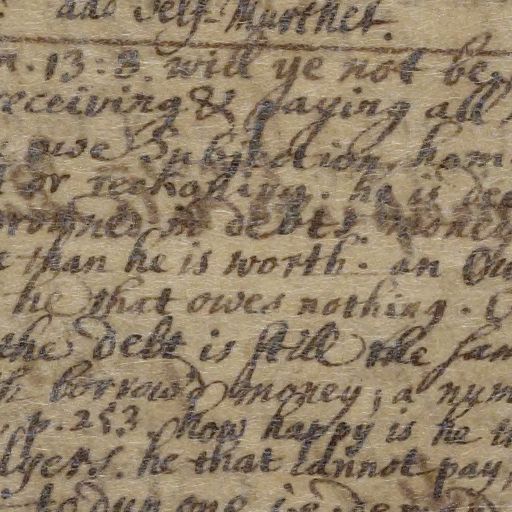 and Self-Murther.
13:8. will ye not be
receiving & paying all
owe Subjection, hom
or reckoning. he is dee
drowned in debts money
than he is worth. an Ou
he that owes nothing.
the debt is still the sam
borrow'd money; a num
p. 253. how happy is he
he that cannot pay,
to dun one i.e.